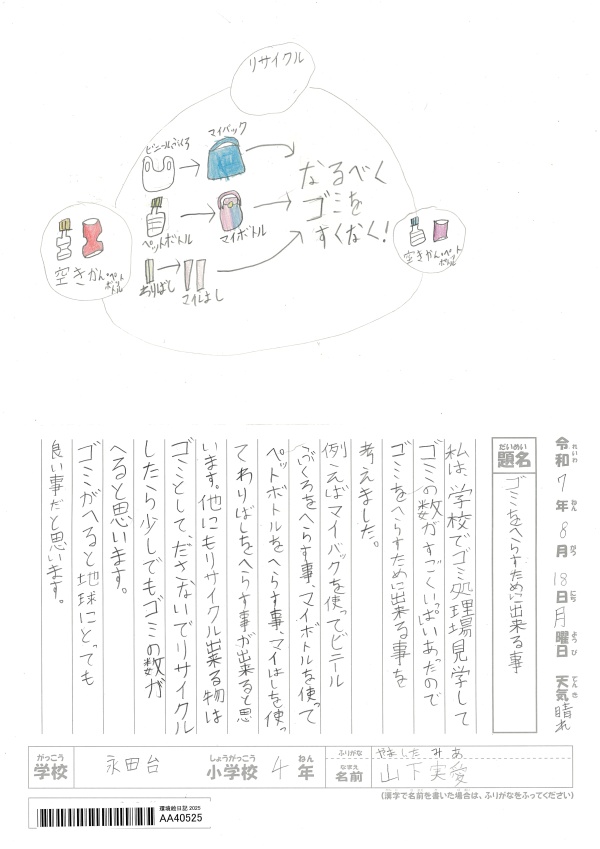 リサイクル
ビニールぶくろ
マイバック
ペットボトル
マイボトル
わりばし
マイはし
なるべく
ゴミを
すくなく!
空きかん・ペットボトル
空きかん・ペットボトル
令和7年8月18日月曜日 天気晴れ
れいわ ねん がつ にち ようび てんき
だいめい
題名
ゴミをへらすために出来る事
私は、学校でゴミ処理場見学して
ゴミの数がすごくいっぱいあったので
ゴミをへらすために出来る事を
考えました。
例えばマイバックを使ってビニール
ぶくろをへらす事、マイボトルを使って
ペットボトルをへらす事、マイはしを使っ
てわりばしをへらす事が出来ると思
います。他にもリサイクル出来る物は
ゴミとして、ださないでリサイクル
したら少しでもゴミの数が
へると思います。
ゴミがへると地球にとっても
良い事だと思います。
がっこう しょうがっこう ねん
学校 永田台 小学校 4年
ふりがな やました みあ
なまえ
名前 山下実愛
(漢字で名前を書いた場合は、ふりがなをふってください)
環境絵日記 2025
AA40525